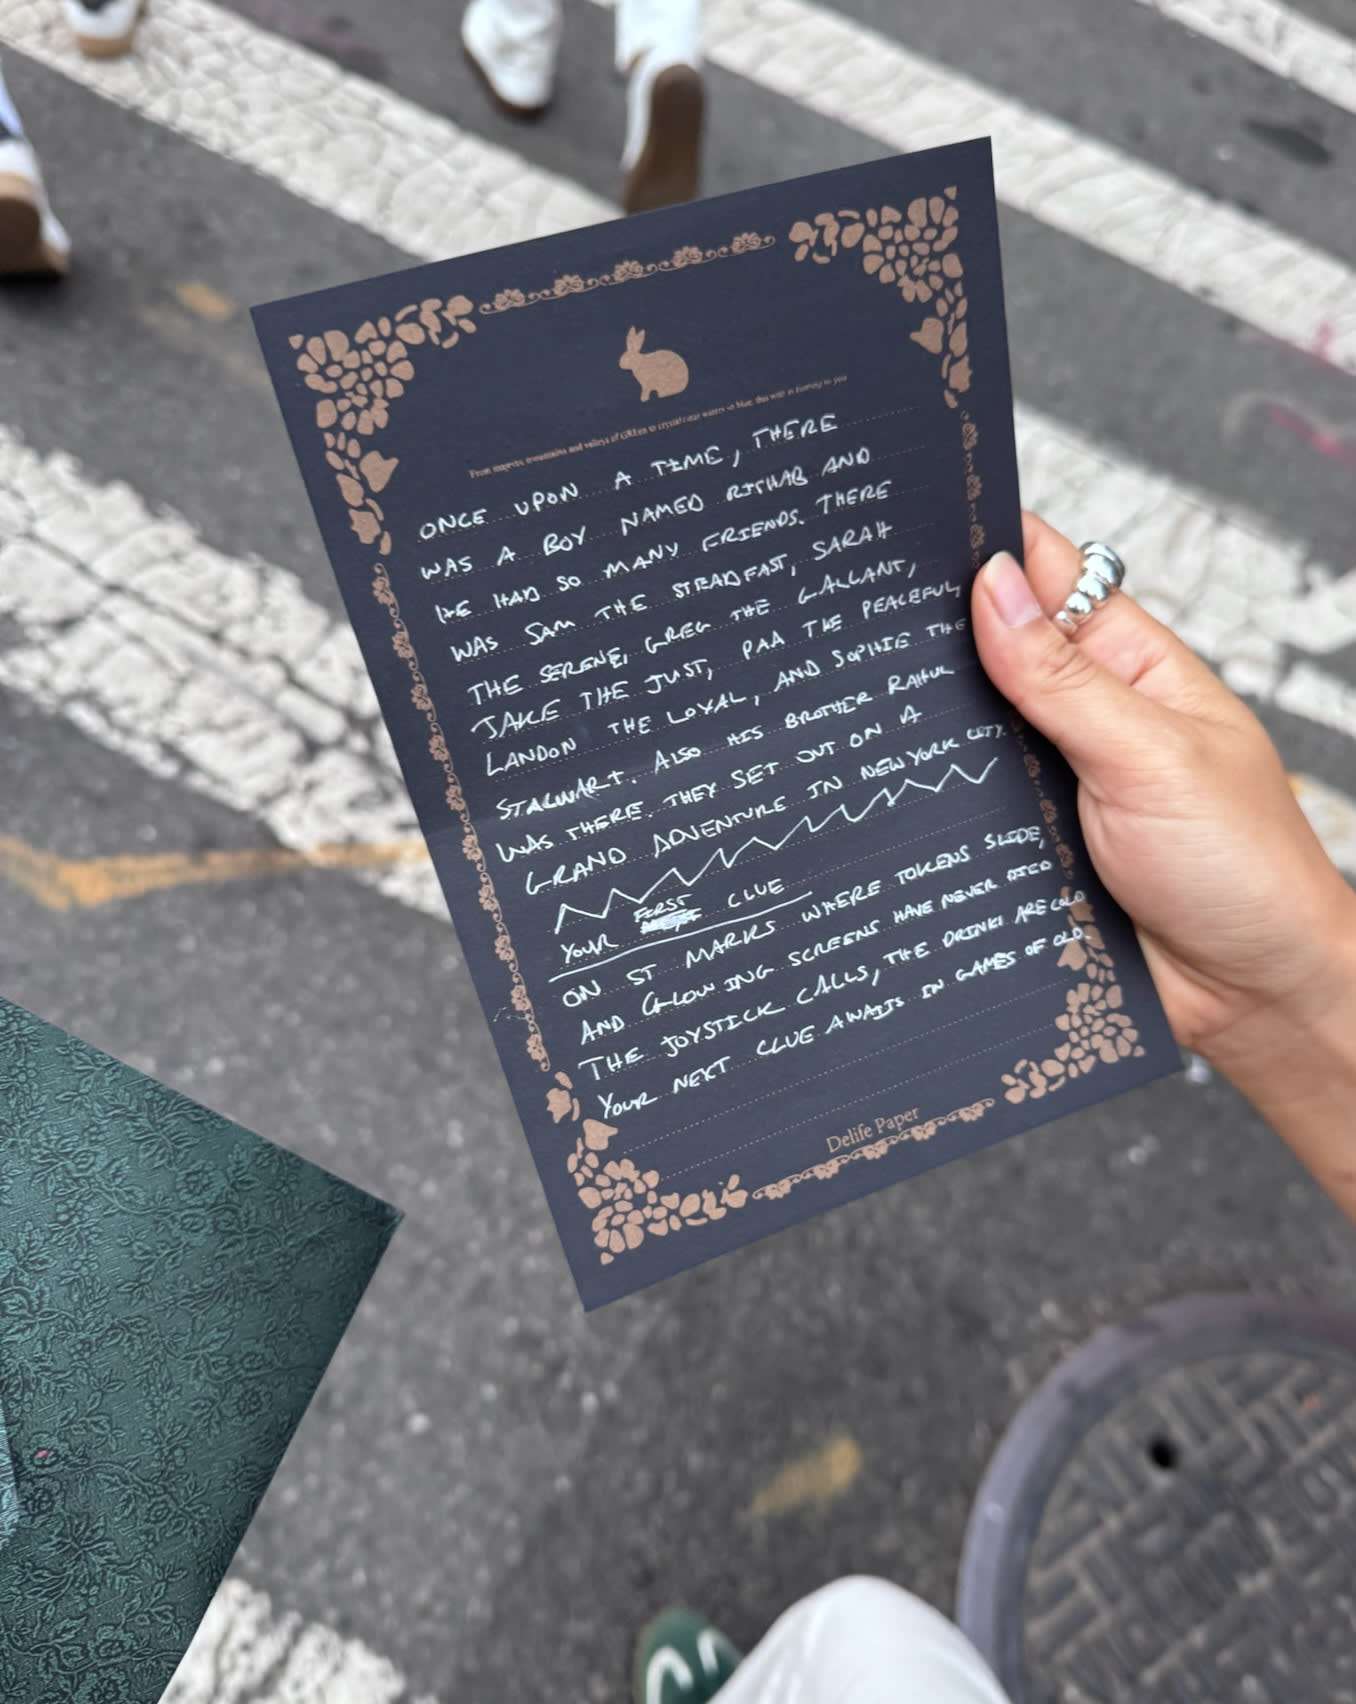 From majestic mountains and valleys of GREen to crystal clear waters so blue, this wish is coming to you
ONCE UPON A TIME, THERE
WAS A BOY NAMED RISHAB AND
HE HAD SO MANY FRIENDS. THERE
WAS SAM THE STEADFAST, SARAH
THE SERENE, GREG THE GALLANT,
JAKE THE JUST, PAA THE PEACEFUL
LANDON THE LOYAL, AND SOPHIE THE
STALWART. ALSO HIS BROTHER RAHUL
WAS THERE. THEY SET OUT ON A
GRAND ADVENTURE IN NEW YORK CITY.
YOUR FIRST CLUE
ON ST MARKS WHERE TOKENS SLIDE,
AND GLOWING SCREENS HAVE NEVER DIED
THE JOYSTICK CALLS, THE DRINKS ARE COLD
YOUR NEXT CLUE AWAITS IN GAMES OF OLD.
Delife Paper